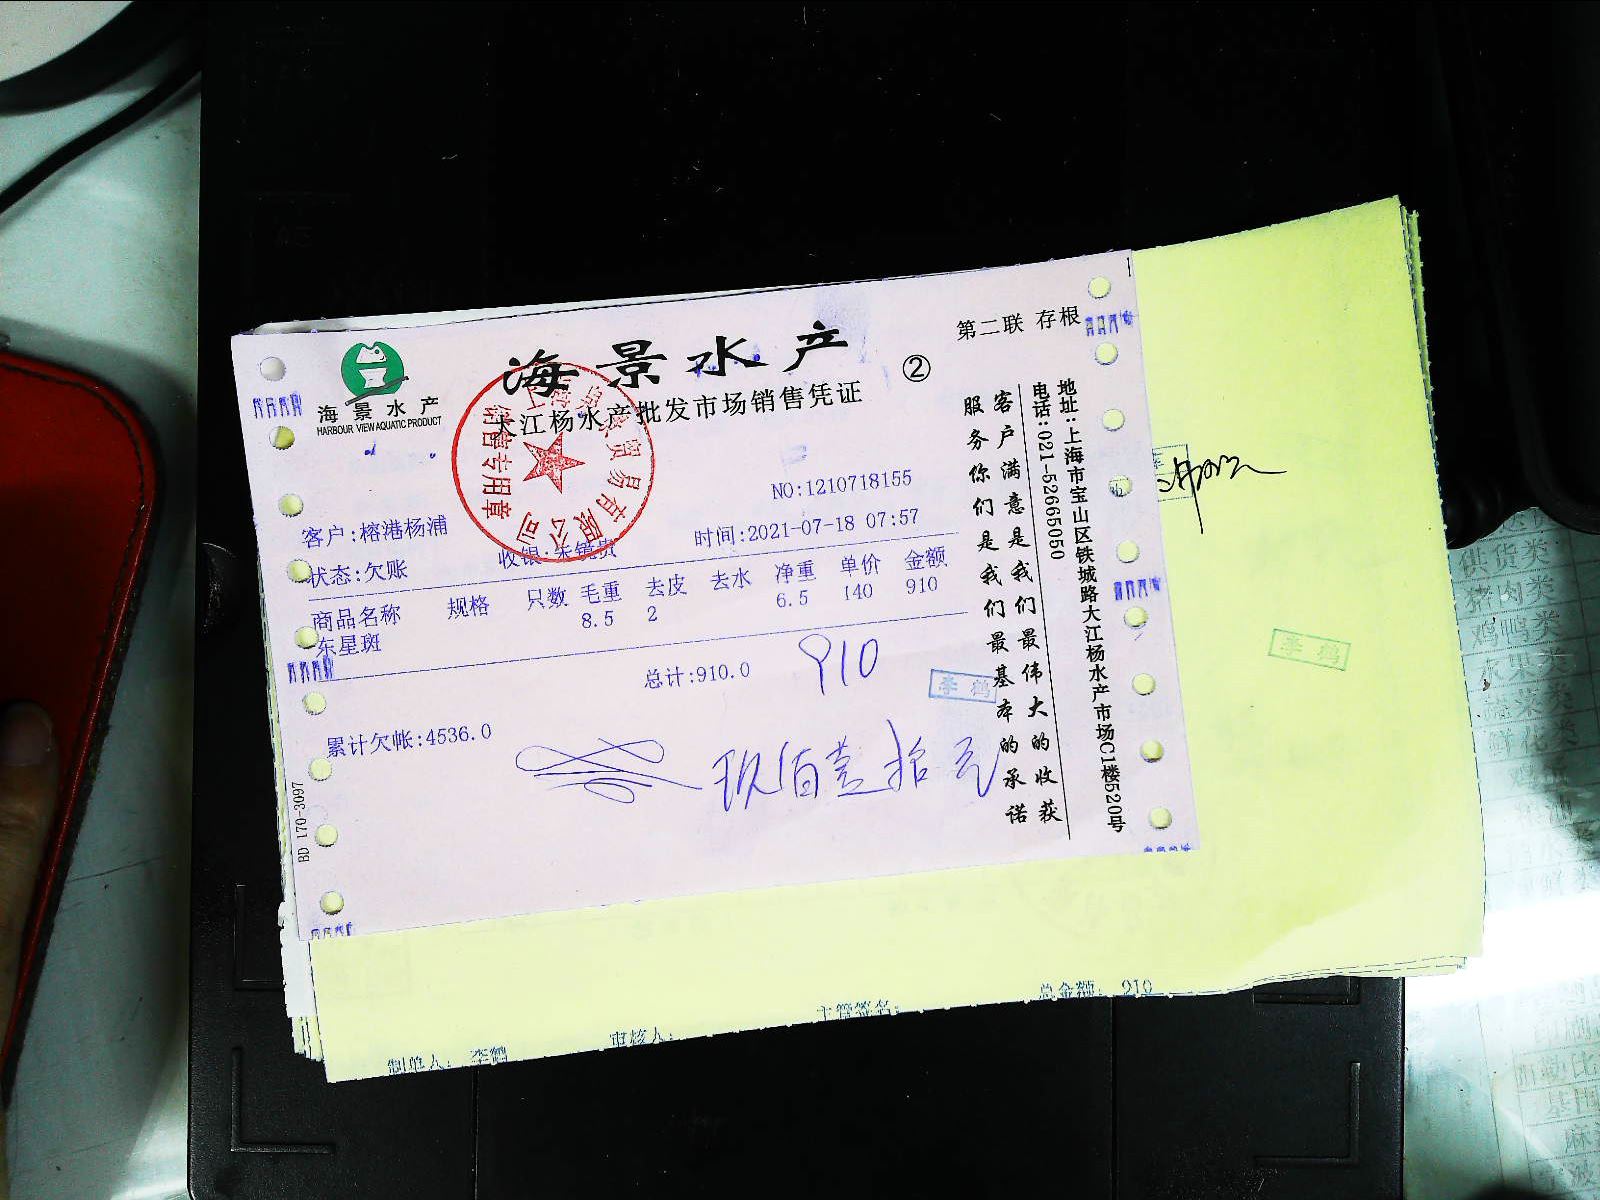 第二联 存根
海景水产
②
海景水产
HARBOUR VIEW AQUATIC PRODUCT
大江杨水产批发市场销售凭证
NO:1210718155
客户:榕港杨浦
时间:2021-07-18 07:57
状态:欠账
收银:朱镜贵
商品名称 规格 只数 毛重 去皮 去水 净重 单价 金额
东星斑 8.5 2 6.5 140 910
总计:910.0
910
李鹤
累计欠帐:4536.0
玖佰壹拾元
BD 170-3097
销售专用章
贸易有限公司
客户满意是我们最伟大的收获
服务你们是我们最基本的承诺
地址:上海市宝山区铁城路大江杨水产市场C1楼520号
电话:021-52265050
李鹤
总金额: 910
主管签名:
审核人:
制单人: 李鹤
供货类
猪肉类
鸡鸭类
水果类
蔬菜类
鲜花类